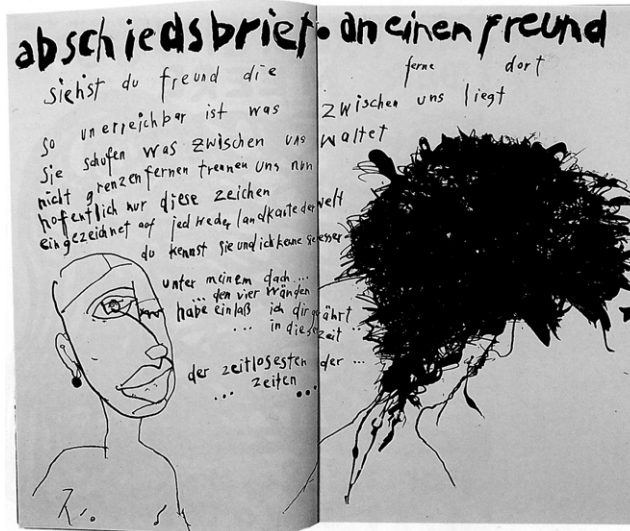 abschiedsbrief. an einen freund
siehst du freund die ferne dort
so unerreichbar ist was zwischen uns liegt
sie schufen was zwischen uns waltet
nicht grenzenfernen trennen uns nun
hofentlich nur diese zeichen
eingezeichnet auf jedweder landkarte der welt
du kennst sie und ich kenne sie besser
unter meinem dach ...
... den vier wänden
habe einlaß ich dir gewährt ...
... in dieser zeit
der zeitlosesten der ...
... zeiten ...